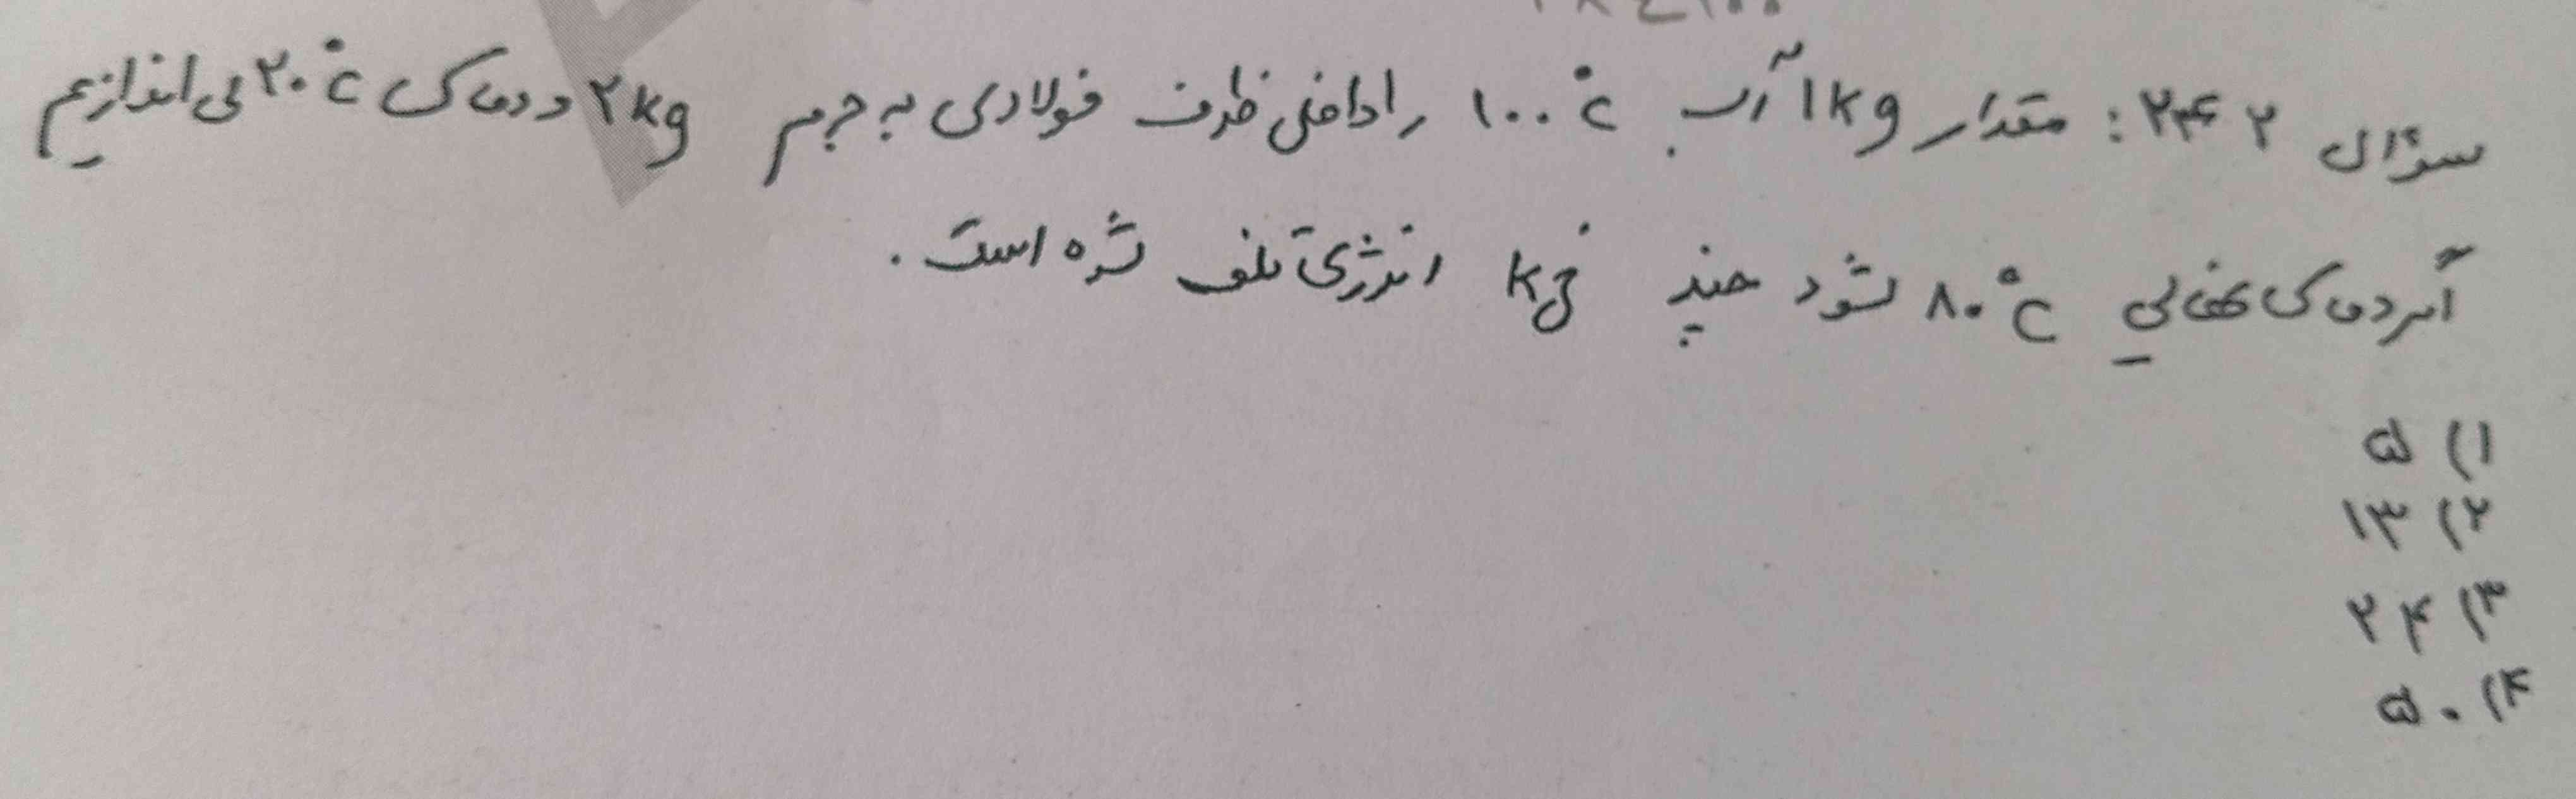 سوال ۲۴۶۲: مقدار ۱kg آب ۱۰۰°c را داخل ظرف فولادی به جرم ۲kg و دمای ۲۰°c می اندازیم
اگر دمای نهایی ۸۰°c شود چند kj انرژی تلف شده است.
۱) ۵
۲) ۱۳
۳) ۲۴
۴) ۵۰